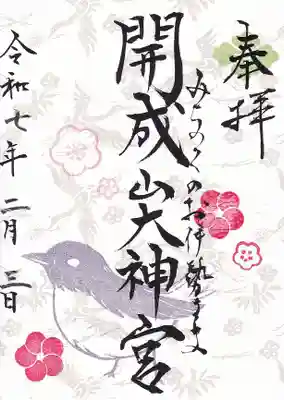 奉拝
みちのくのお伊勢さま
開成山大神宮
令和七年 二月 三日